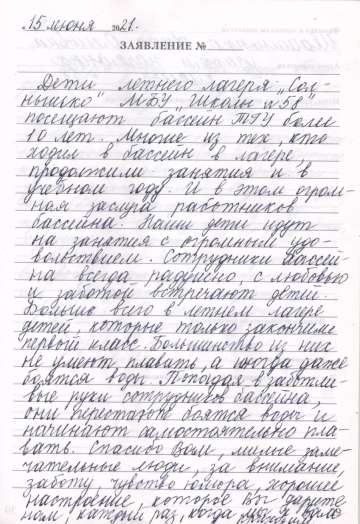 15 июня 2021.
ЗАЯВЛЕНИЕ №
Дети летнего лагеря „Сол-
нышко" МБУ „Школа №58"
посещают бассейн ТГУ более
10 лет. Многие из тех, кто
ходил в бассейн в лагере,
продолжили занятия и в
учебном году. И в этом огром-
ная заслуга работников
бассейна. Наши дети идут
на занятия с огромным удо-
вольствием. Сотрудники бассей-
на всегда радушно, с любовью
и заботой встречают детей.
Больше всего в летнем лагере
детей, которые только закончили
первый класс. Большинство из них
не умеют плавать, а иногда даже
боятся воды. Попадая в заботли-
вые руки сотрудников бассейна,
они перестают боятся воды и
начинают самостоятельно пла-
вать. Спасибо Вам, милые заме-
чательные люди, за внимание,
заботу, чувство юмора, хорошее
настроение, которое Вы дарите
нам каждый раз, когда мы к Вам